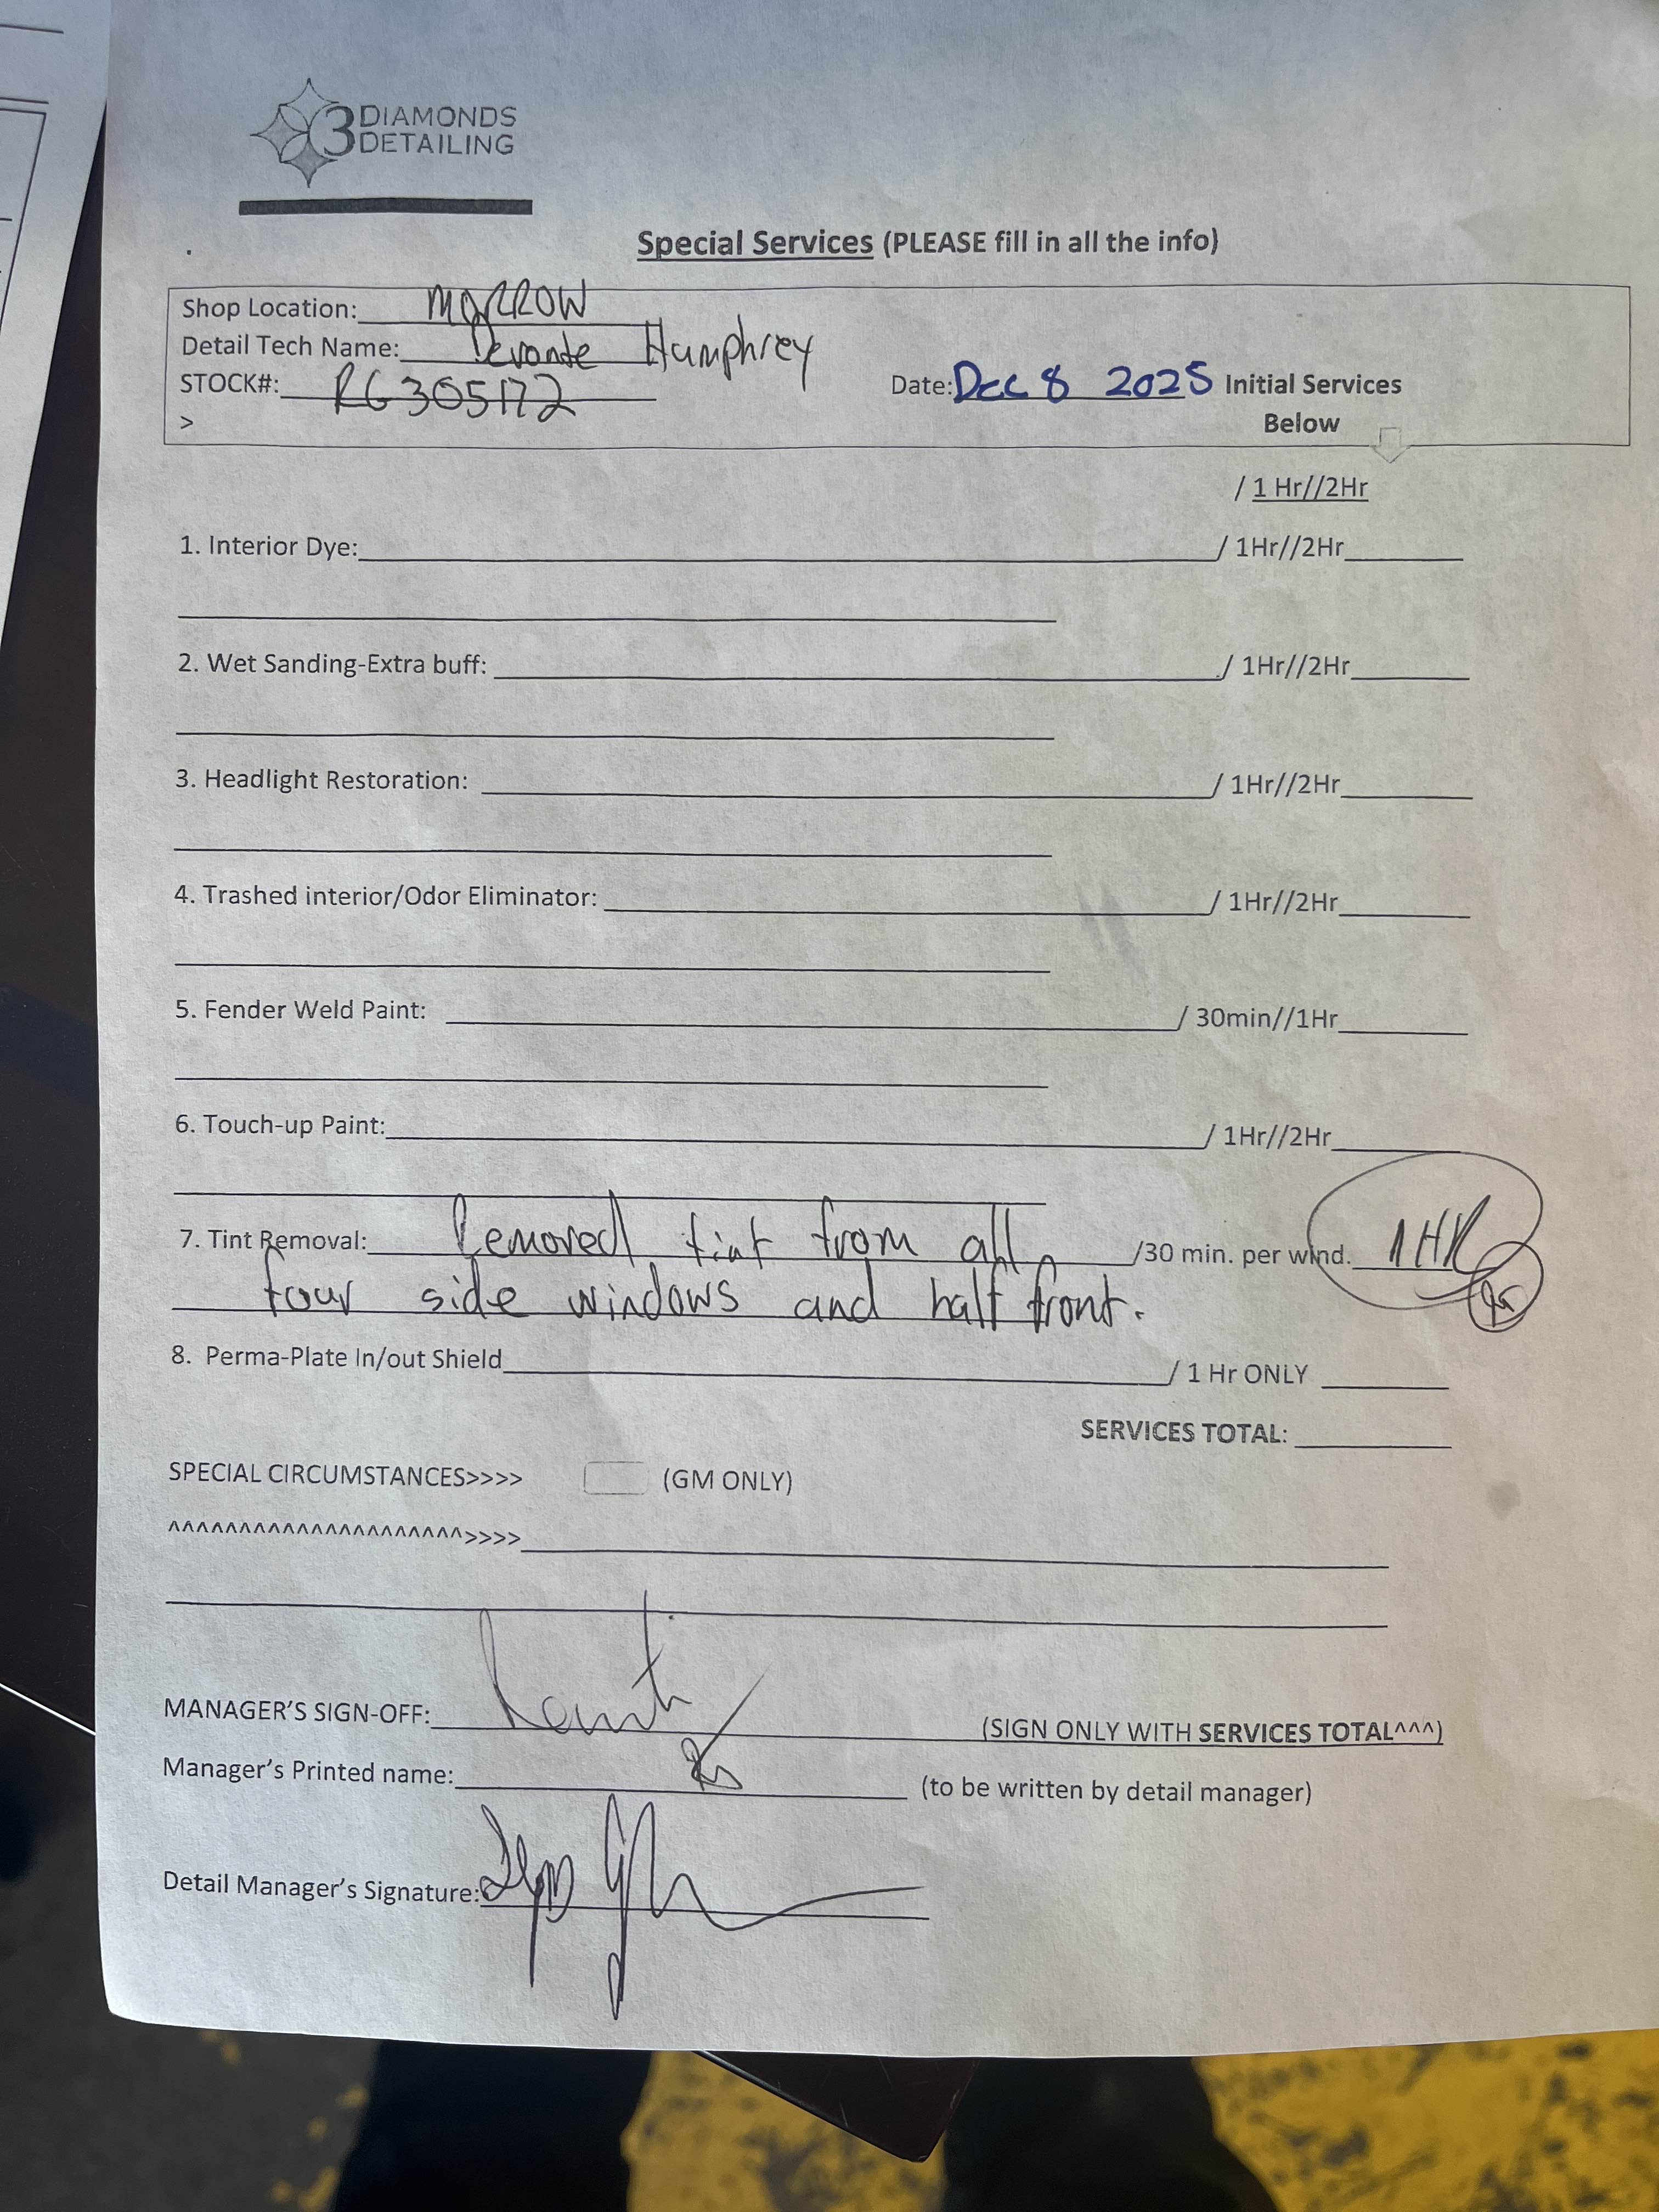 3 DIAMONDS
DETAILING
Special Services (PLEASE fill in all the info)
Shop Location: MORROW
Detail Tech Name: Devonte Humphrey
STOCK#: RG305172
Date: Dec 8 2025 Initial Services
>
Below
/ 1 Hr//2Hr
1. Interior Dye: / 1Hr//2Hr
2. Wet Sanding-Extra buff: / 1Hr//2Hr
3. Headlight Restoration: / 1Hr//2Hr
4. Trashed interior/Odor Eliminator: / 1Hr//2Hr
5. Fender Weld Paint: / 30min//1Hr
6. Touch-up Paint: / 1Hr//2Hr
7. Tint Removal: Removed tint from all /30 min. per wind. 1HR
four side windows and half front.
8. Perma-Plate In/out Shield / 1 Hr ONLY
SERVICES TOTAL:
SPECIAL CIRCUMSTANCES>>>> (GM ONLY)
^^^^^^^^^^^^^^^^^^^^^>>>>
MANAGER'S SIGN-OFF: (SIGN ONLY WITH SERVICES TOTAL^^^)
Manager's Printed name: (to be written by detail manager)
Detail Manager's Signature: